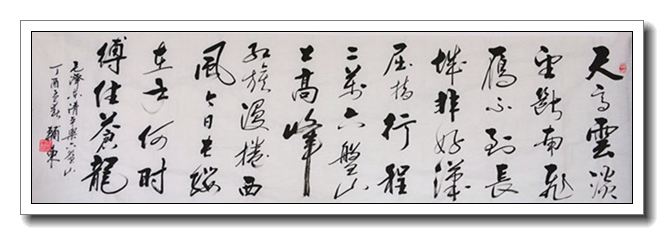 天高雲淡
望斷南飛
雁不到長
城非好漢
屈指行程
二萬六盤山
上高峰
紅旗漫捲西
風今日長纓
在手何時
縛住蒼龍
毛澤東清平樂六盤山
丁酉